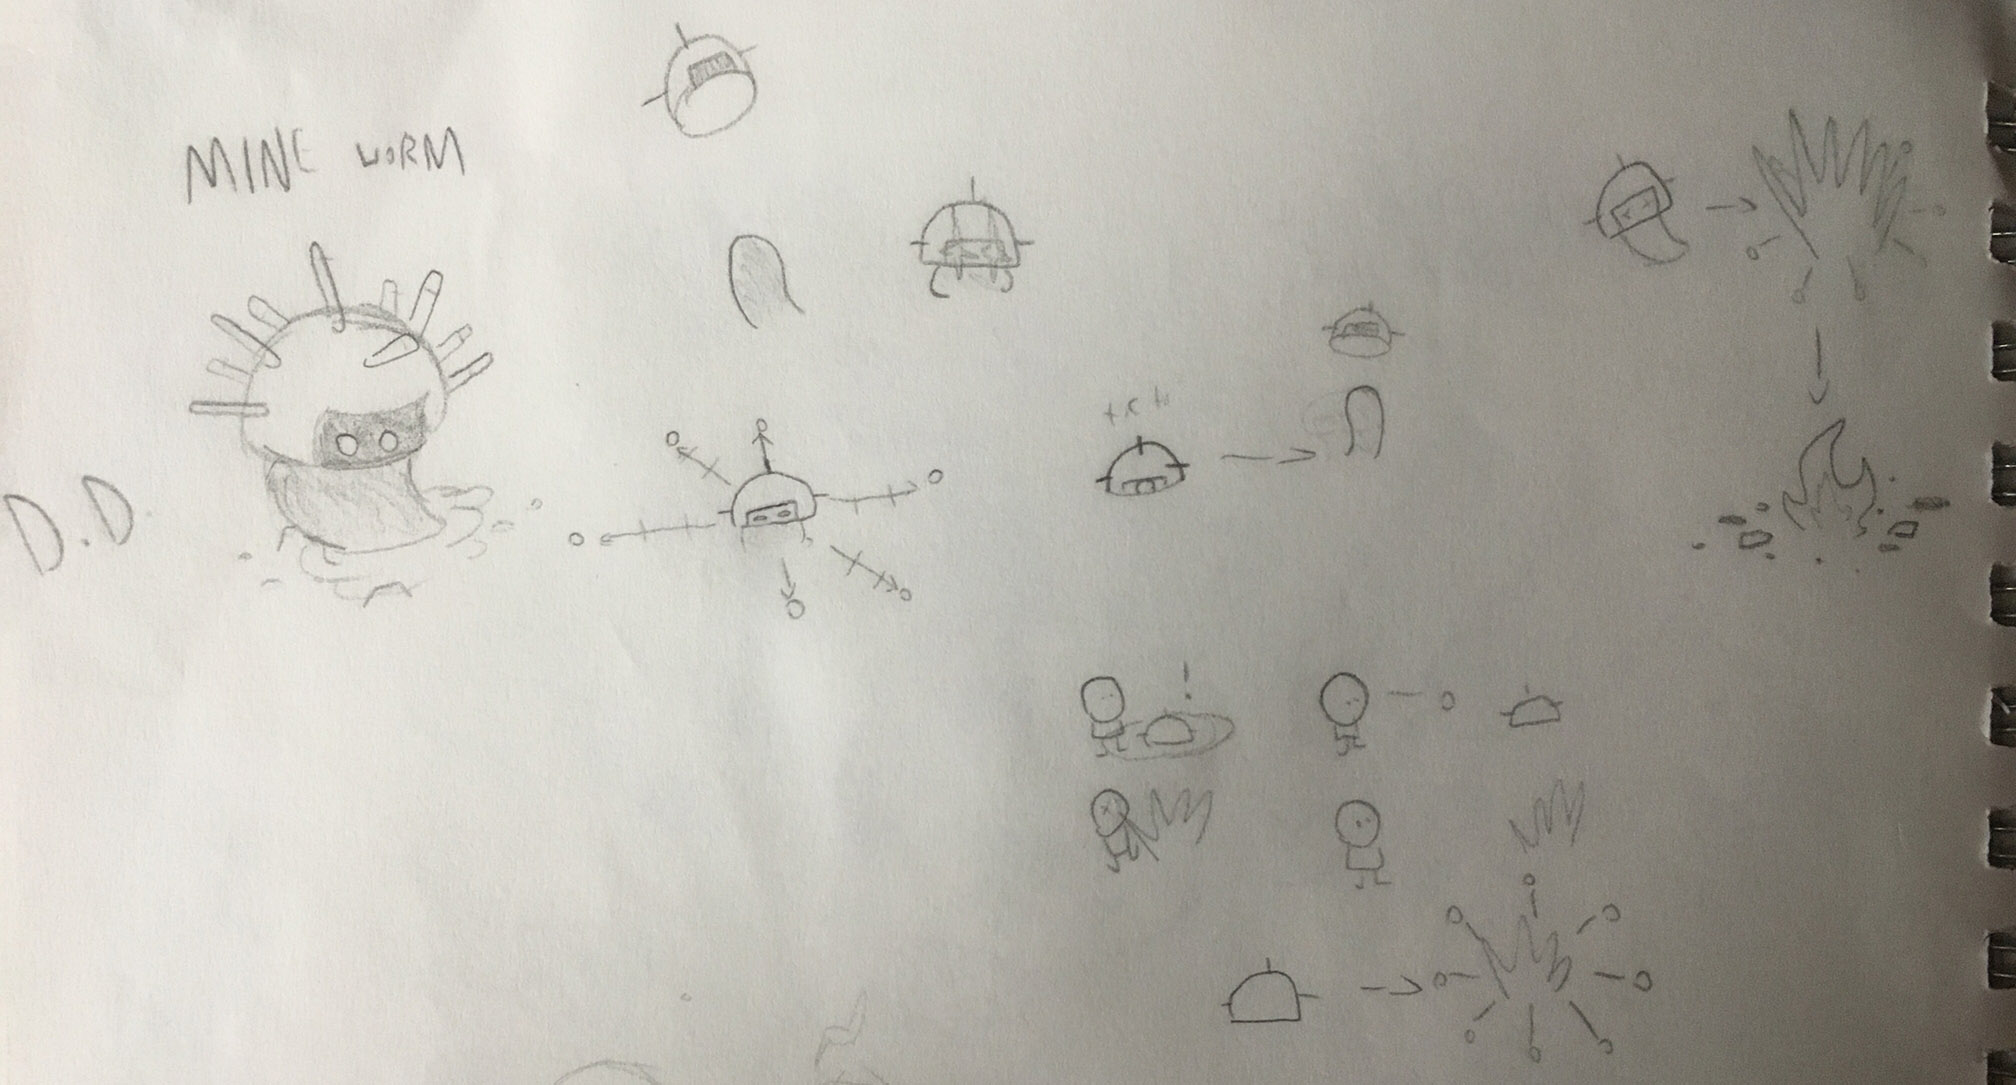 MINE WORM
D.D.
!